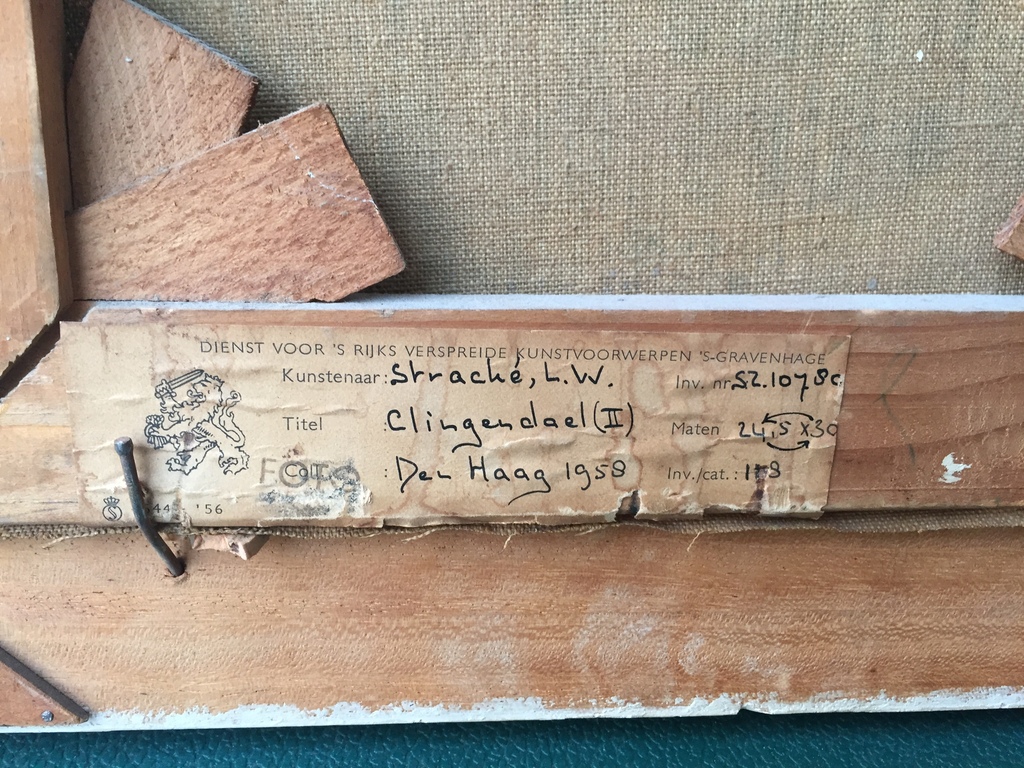 DIENST VOOR 'S RIJKS VERSPREIDE KUNSTVOORWERPEN 'S-GRAVENHAGE
Kunstenaar: Straché, L.W. Inv. nr. SZ.1078c
Titel : Clingendael (II) Maten 24,5 x 30
Coll. : Den Haag 1958 Inv./cat.: 118
44 - '56